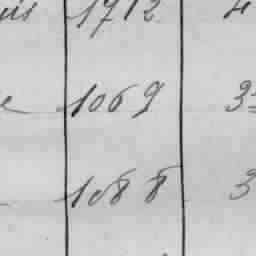 1712 4
1069 3
1088 3